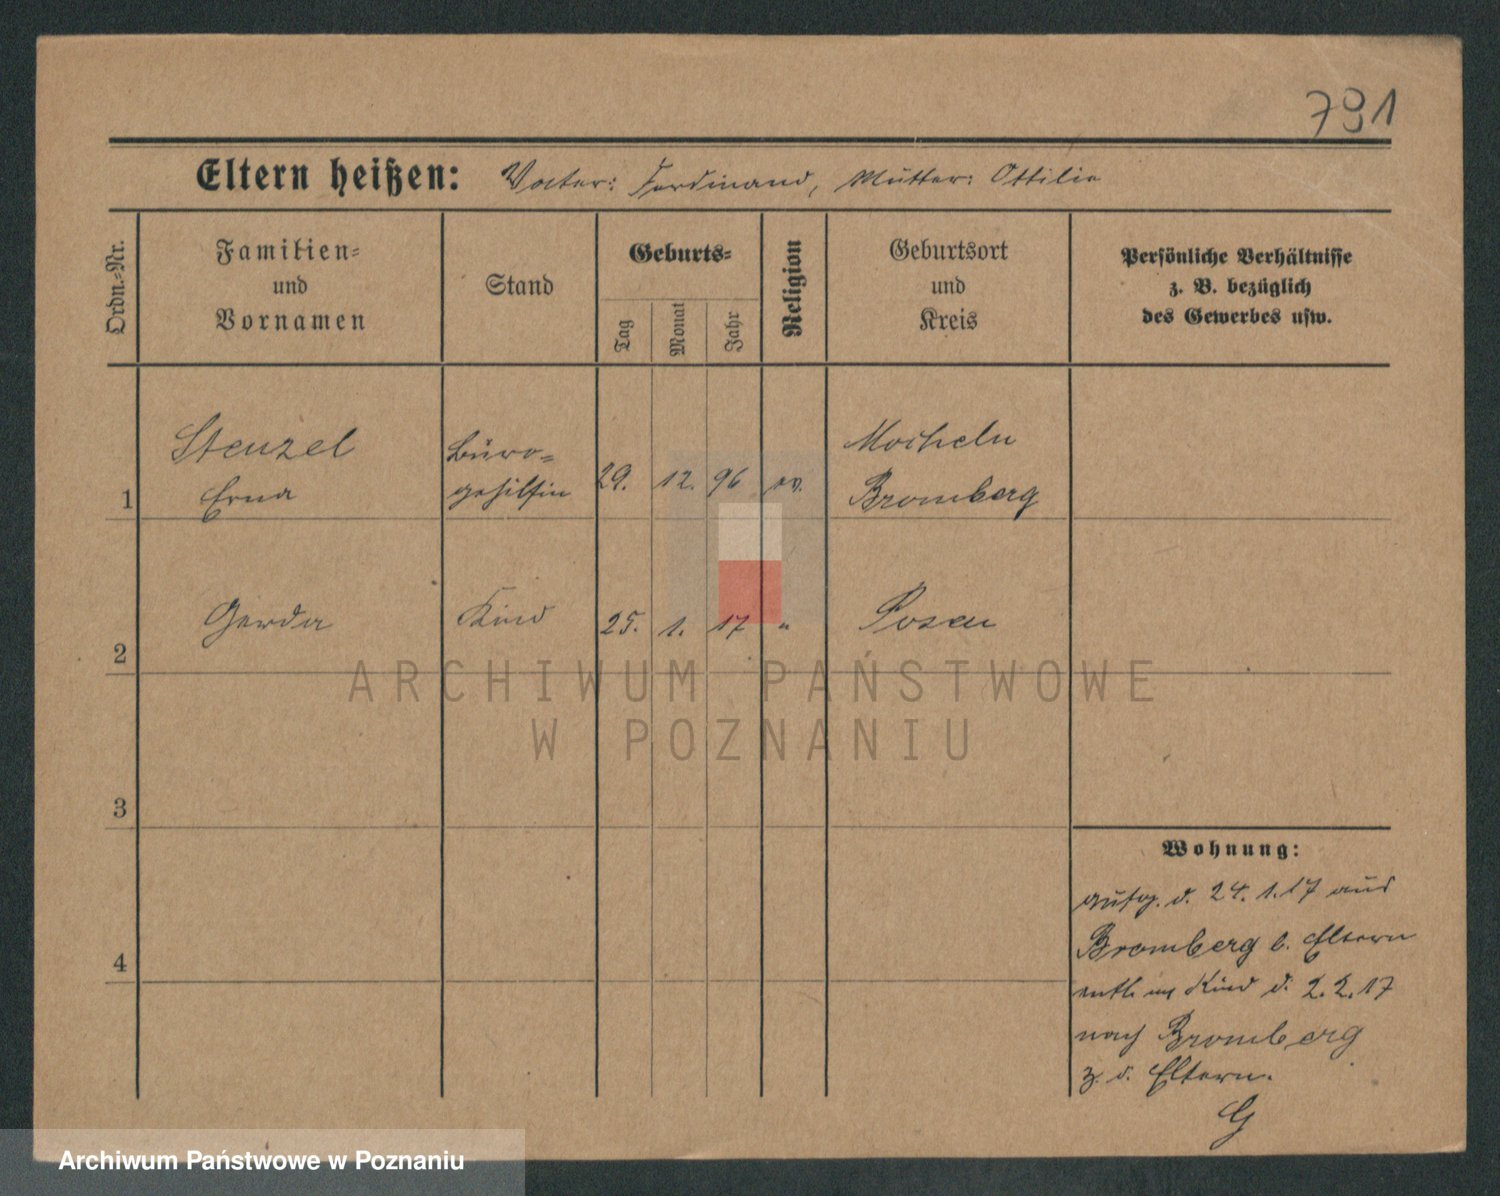 791
Eltern heißen: Vater: Ferdinand, Mutter: Ottilie
Ordn.-Nr.
Familien-
und
Vornamen
Stand
Geburts-
Tag
Monat
Jahr
Religion
Geburtsort
und
Kreis
Persönliche Verhältnisse
z. B. bezüglich
des Gewerbes usw.
1
Stenzel
Erna
Büro-
gehilfin
29. 12. 96 ev.
Mocheln
Bromberg
2
Gerda
Kind
25. 1. 17 "
Posen
3
4
Wohnung:
aufg. d. 24. 1. 17 aus
Bromberg b. Eltern
entl. m Kind d. 2. 2. 17
nach Bromberg
z. d. Eltern.
G
ARCHIWUM PAŃSTWOWE
W POZNANIU
Archiwum Państwowe w Poznaniu